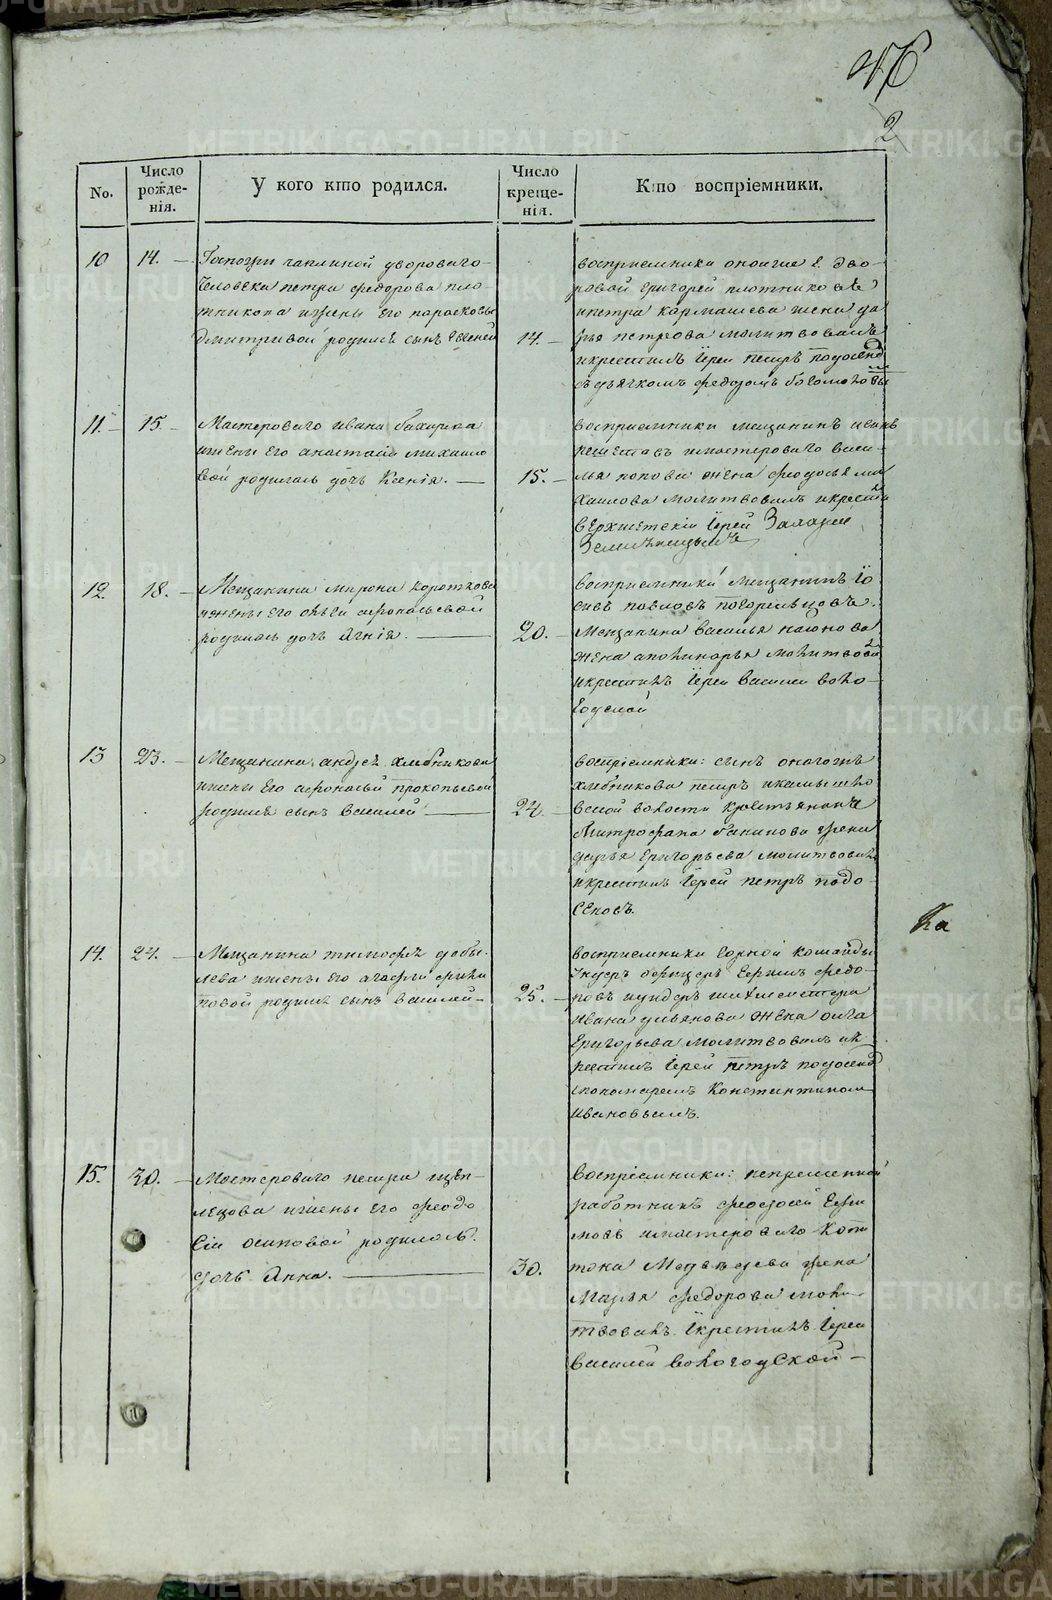 46
2
No.
Число рожде-нія.
У кого кто родился.
Число креще-нія.
Кто воспріемники.
10
14.
Госпожи чаплиной двороваго
Человека петра федорова пло
тникова ижены Его парасковьи
дмитревой родился сынъ Евгеней
14.
восприемники оноиже г. дво-
ровой григорей плотниковъ
ипетра кармашева жена да
рья петрова молитвовалъ
икрестилъ Іерей петръ подосенов
съ дьячкомъ федоромъ богомоловы
11.
15.
Мастероваго ивана
ижены его анастасіи михаило
вой родилась дочь Ксенія.
15.
восприемники мещанинъ иванъ
имастероваго васи-
лья попова жена федосья ми
хаилова молитвовалъ икрестил
верхисетскій Іерей
12.
18.
Мещанина мирона короткова
ижены его афонасьевой
родилась дочь Агнія.
20.
Восприемники Мещанинъ Іо
сивъ павловъ погорельцовъ.
Мещанина василья
жена молитвовал
икрестилъ Іерей василей воло-
годской
13
23.
Мещанина андрея хлебникова
ижены его прокопьевой
родился сынъ василей
24.
воспріемники: сынъ онагожъ
хлебникова петръ икамышло
вской волости крестьянина
Митрофана бакинова жена
дарья григорьева молитвовалъ
икрестилъ Іерей петръ подо-
сеновъ.
Ка
14.
24.
Мещанина тимофея добы-
лева ижены его агафьи фили
повой родился сынъ василей
25.
восприемники Горной команды
Унтеръ офицеръ федо-
ровъ иунтеръ шихтмейстера
ивана ульянова жена олга
григорьева молитвовалъ ик
рестилъ Іерей петръ подосенов
спономаремъ Константиномъ
ивановымъ.
15.
30.
Мастероваго петра щеп-
лецова ижены его феодо
сіи осиповой родилась
дочь Анна.
30.
Воспріемники: непременной
работникъ федосей Ефи
мовъ имастероваго
Медведева жена
Марья федорова моли
твовалъ. Икрестилъ. Іерей
василей вологодской